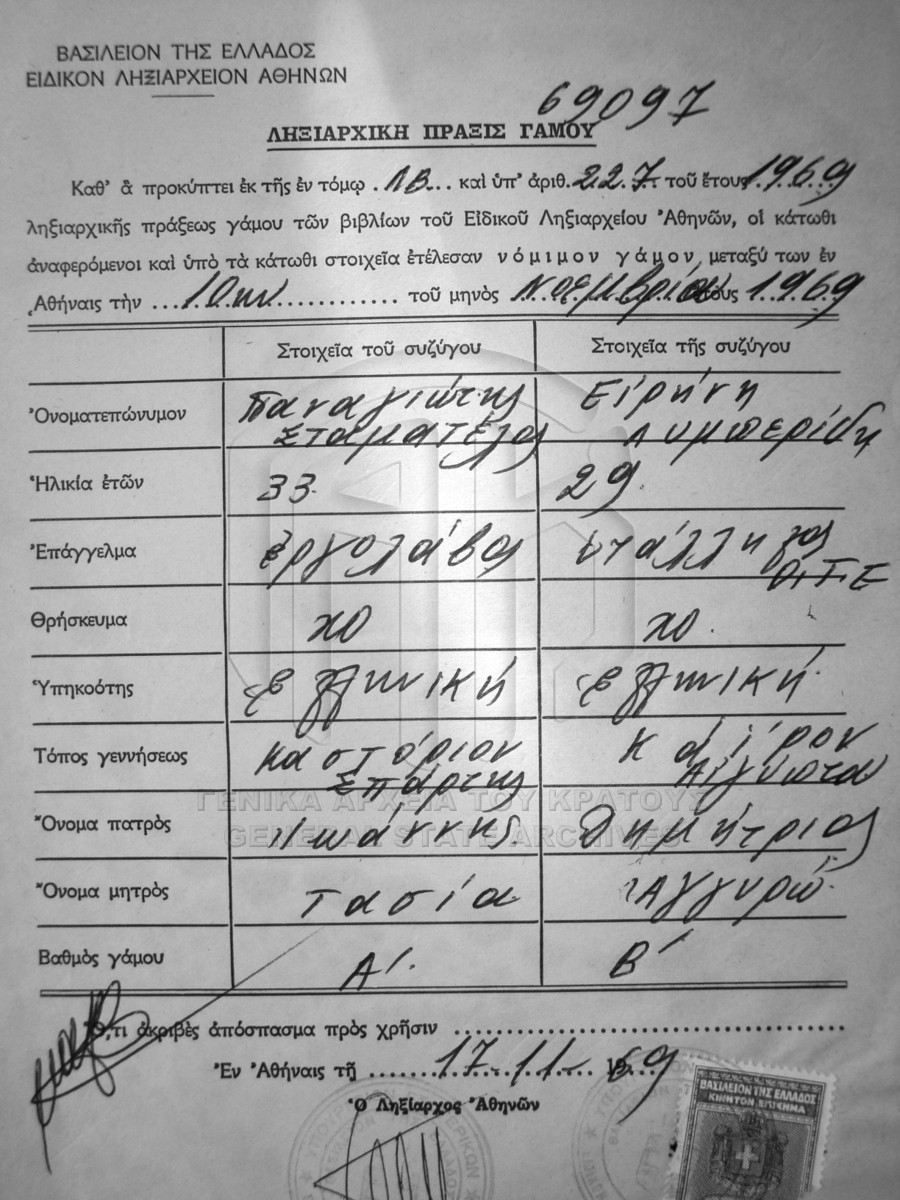 ΒΑΣΙΛΕΙΟΝ ΤΗΣ ΕΛΛΑΔΟΣ
ΕΙΔΙΚΟΝ ΛΗΞΙΑΡΧΕΙΟΝ ΑΘΗΝΩΝ
69097
ΛΗΞΙΑΡΧΙΚΗ ΠΡΑΞΙΣ ΓΑΜΟΥ
Καθ' ἃ προκύπτει ἐκ τῆς ἐν τόμῳ ΛΒ καὶ ὑπ' ἀριθ. 227 τοῦ ἔτους 1969
ληξιαρχικῆς πράξεως γάμου τῶν βιβλίων τοῦ Εἰδικοῦ Ληξιαρχείου Ἀθηνῶν, οἱ κάτωθι
ἀναφερόμενοι καὶ ὑπὸ τὰ κάτωθι στοιχεῖα ἐτέλεσαν νόμιμον γάμον, μεταξύ των ἐν
Ἀθήναις τὴν 10ην τοῦ μηνὸς Νοεμβρίου ἔτους 1969
Στοιχεῖα τοῦ συζύγου Στοιχεῖα τῆς συζύγου
Ὀνοματεπώνυμον Παναγιώτης Σταματέλος Εἰρήνη Λυμπερίδη
Ἡλικία ἐτῶν 33 29
Ἐπάγγελμα ἐργολάβος ὑπάλληλος Ο.Τ.Ε
Θρήσκευμα ΧΟ ΧΟ.
Ὑπηκοότης Ἑλληνική Ἑλληνική
Τόπος γεννήσεως Καστόριον Σπάρτης Κάϊρον Αἰγύπτου
Ὄνομα πατρὸς Ἰωάννης Δημήτριος
Ὄνομα μητρὸς Τασία
Βαθμὸς γάμου Α'. Β'
ΓΕΝΙΚΑ ΑΡΧΕΙΑ ΤΟΥ ΚΡΑΤΟΥΣ
GENERAL STATE ARCHIVES
Ὅ,τι ἀκριβὲς ἀπόσπασμα πρὸς χρῆσιν
Ἐν Ἀθήναις τῇ 17.11. 1969
Ὁ Ληξίαρχος Ἀθηνῶν
ΒΑΣΙΛΕΙΟΝ ΤΗΣ ΕΛΛΑΔΟΣ
ΚΙΝΗΤΟΝ ΕΠΙΣΗΜΑ